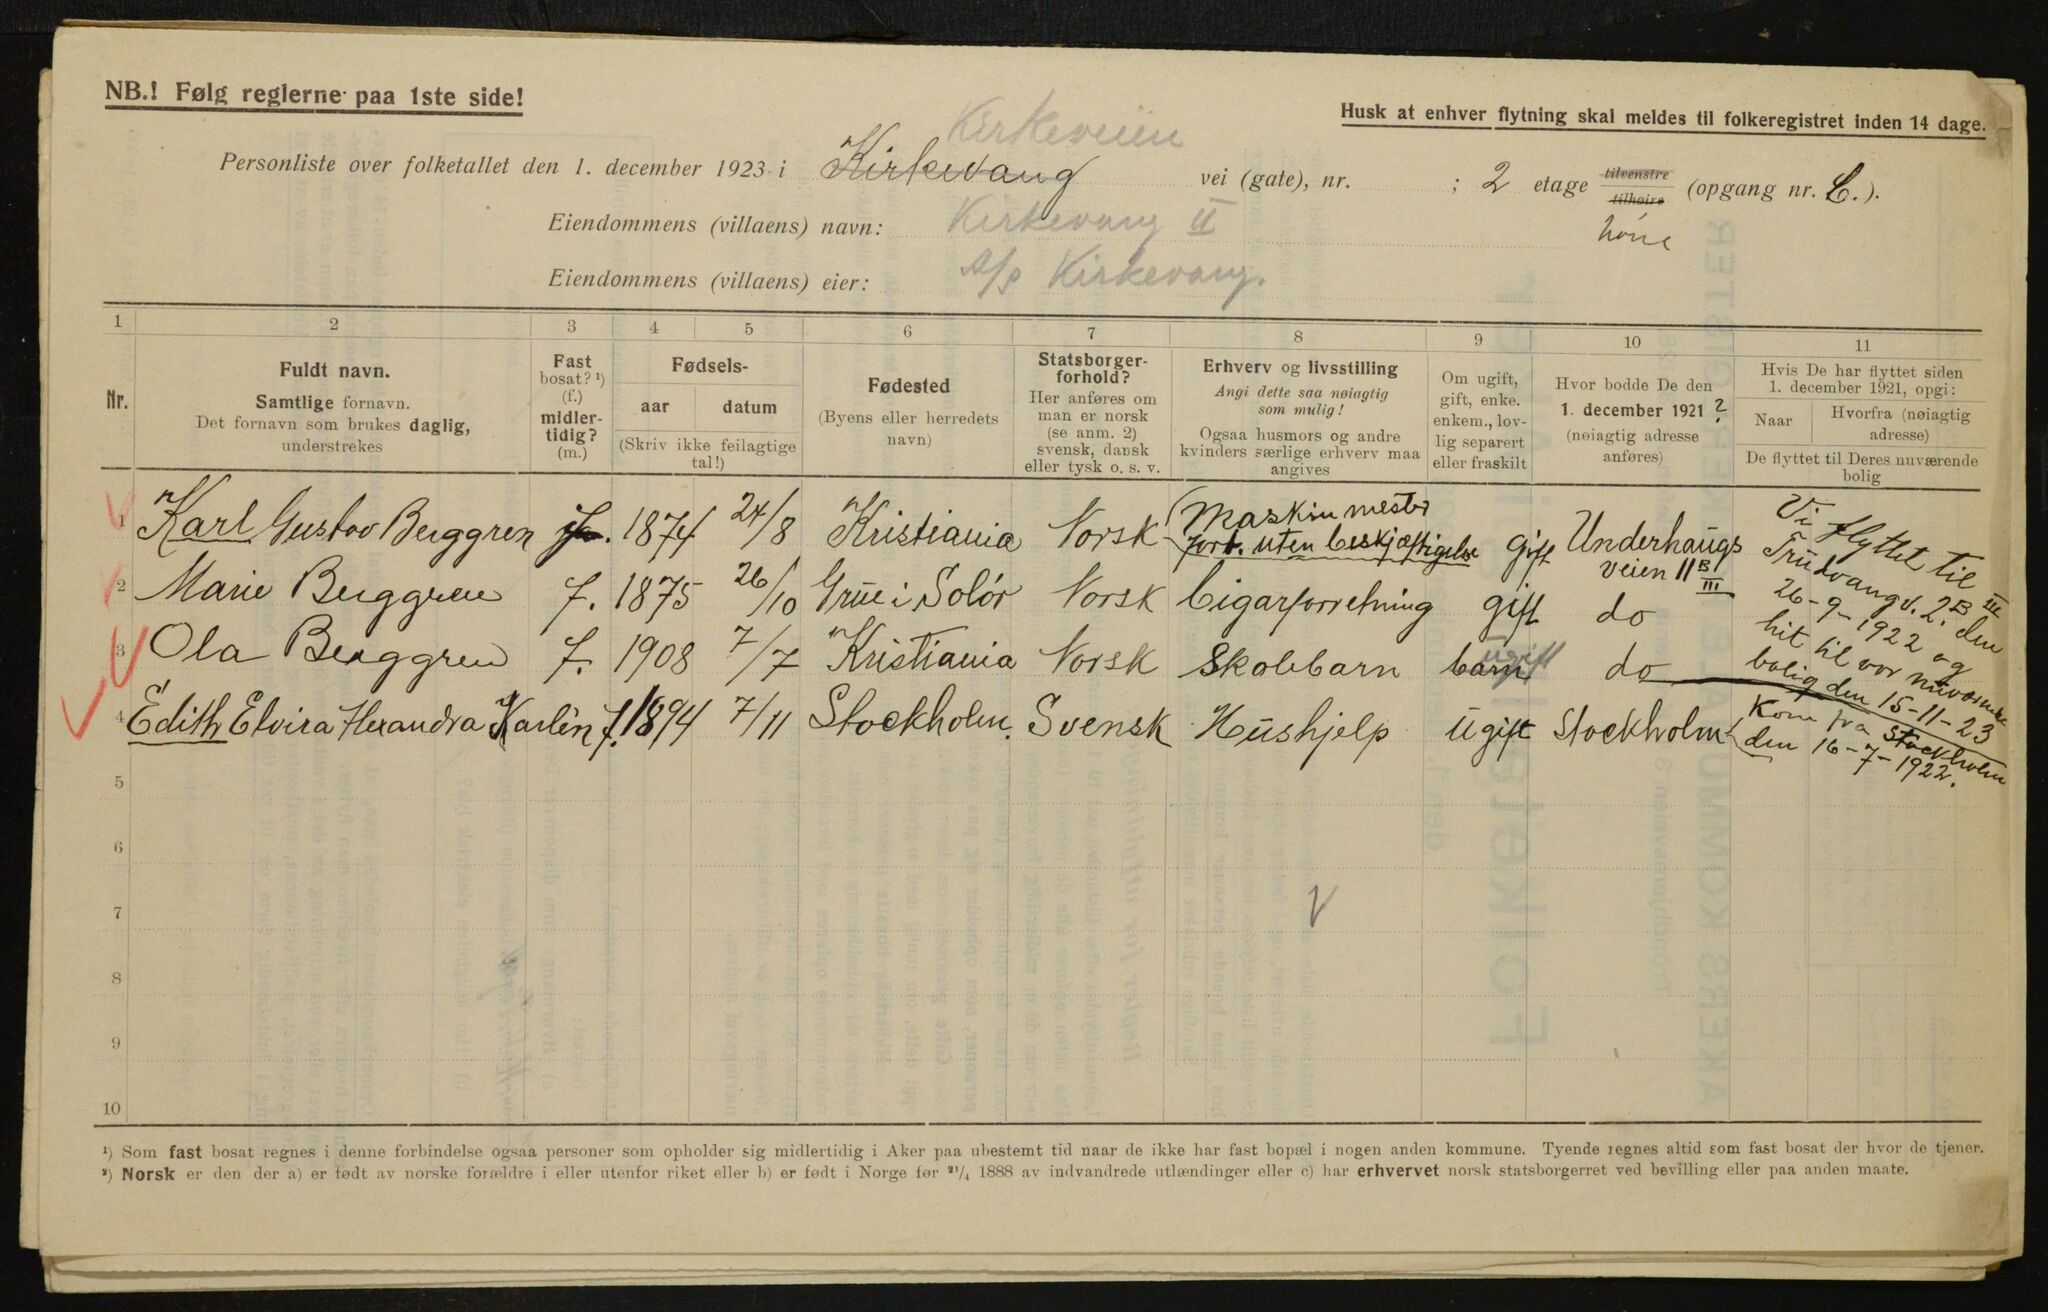 NB.! Følg reglerne paa 1ste side!
Husk at enhver flytning skal meldes til folkeregistret inden 14 dage.
Kirkeveien
Personliste over folketallet den 1. december 1923 i Kirkevang vei (gate), nr. ; 2 etage tilvenstre tilhøire (opgang nr. C.).
Eiendommens (villaens) navn: Kirkevang II
Eiendommens (villaens) eier: A/S Kirkevang.
1 2 3 4 5 6 7 8 9 10 11
Nr.
Fuldt navn.
Samtlige fornavn.
Det fornavn som brukes daglig,
understrekes
Fast
bosat? ¹)
(f.)
midler-
tidig?
(m.)
Fødsels-
aar datum
(Skriv ikke feilagtige
tal!)
Fødested
(Byens eller herredets
navn)
Statsborger-
forhold?
Her anføres om
man er norsk
(se anm. 2)
svensk, dansk
eller tysk o. s. v.
Erhverv og livsstilling
Angi dette saa nøiagtig
som mulig!
Ogsaa husmors og andre
kvinders særlige erhverv maa
angives
Om ugift,
gift, enke.
enkem., lov-
lig separert
eller fraskilt
Hvor bodde De den
1. december 1921?
(nøiagtig adresse
anføres)
Hvis De har flyttet siden
1. december 1921, opgi:
Naar Hvorfra (nøiagtig
adresse)
De flyttet til Deres nuværende
bolig
1 Karl Gustav Berggren f. 1874 24/8 Kristiania Norsk (Maskinmester
fort. uten beskjæftigelse gift Underhaugs
veien 11 B III
2 Marie Berggren f. 1875 26/10 Grue i Solør Norsk Cigarforretning gift do
3 Ola Berggren f. 1908 7/7 Kristiania Norsk Skolebarn barn ugift do
Vi flyttet til
Trudvangv. 2 B III den
26-9-1922 og
hit til vor nuværende
bolig den 15-11-23
4 Edith Elvira Alexandra Karlén f. 1894 7/11 Stockholm. Svensk Hushjelp Ugift Stockholm
Kom fra Stockholm
den 16-7-1922.
5
6
7
8
9
10
¹) Som fast bosat regnes i denne forbindelse ogsaa personer som opholder sig midlertidig i Aker paa ubestemt tid naar de ikke har fast bopæl i nogen anden kommune. Tyende regnes altid som fast bosat der hvor de tjener.
²) Norsk er den der a) er født av norske forældre i eller utenfor riket eller b) er født i Norge før ²¹/₄ 1888 av indvandrede utlændinger eller c) har erhvervet norsk statsborgerret ved bevilling eller paa anden maate.